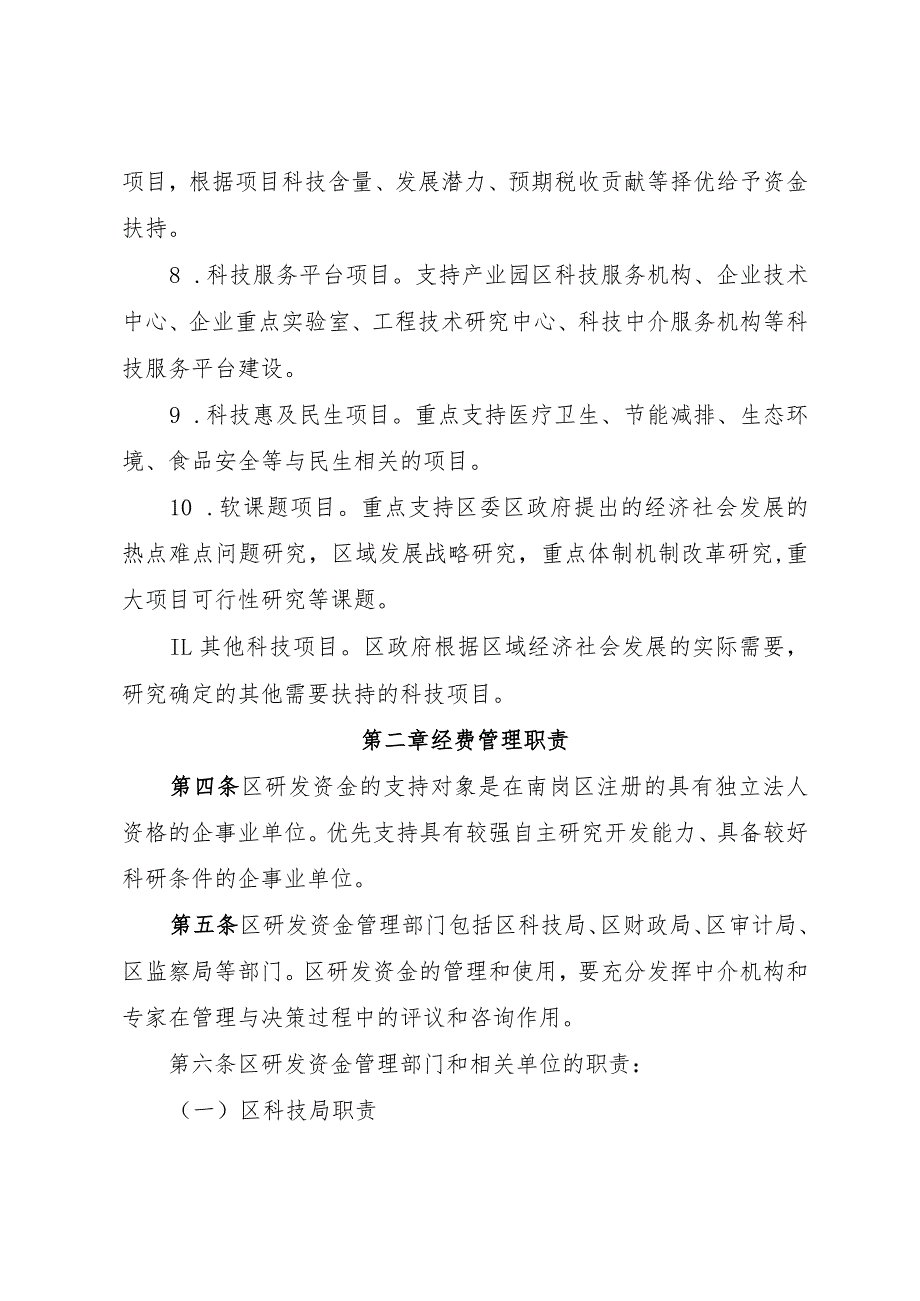 项目，根据项目科技含量、发展潜力、预期税收贡献等择优给予资金
扶持。
8 .科技服务平台项目。支持产业园区科技服务机构、企业技术
中心、企业重点实验室、工程技术研究中心、科技中介服务机构等科
技服务平台建设。
9 .科技惠及民生项目。重点支持医疗卫生、节能减排、生态环
境、食品安全等与民生相关的项目。
10 .软课题项目。重点支持区委区政府提出的经济社会发展的
热点难点问题研究，区域发展战略研究，重点体制机制改革研究,重
大项目可行性研究等课题。
IL 其他科技项目。区政府根据区域经济社会发展的实际需要，
研究确定的其他需要扶持的科技项目。
第二章经费管理职责
第四条区研发资金的支持对象是在南岗区注册的具有独立法人
资格的企事业单位。优先支持具有较强自主研究开发能力、具备较好
科研条件的企事业单位。
第五条区研发资金管理部门包括区科技局、区财政局、区审计局、
区监察局等部门。区研发资金的管理和使用，要充分发挥中介机构和
专家在管理与决策过程中的评议和咨询作用。
第六条区研发资金管理部门和相关单位的职责：
（一）区科技局职责